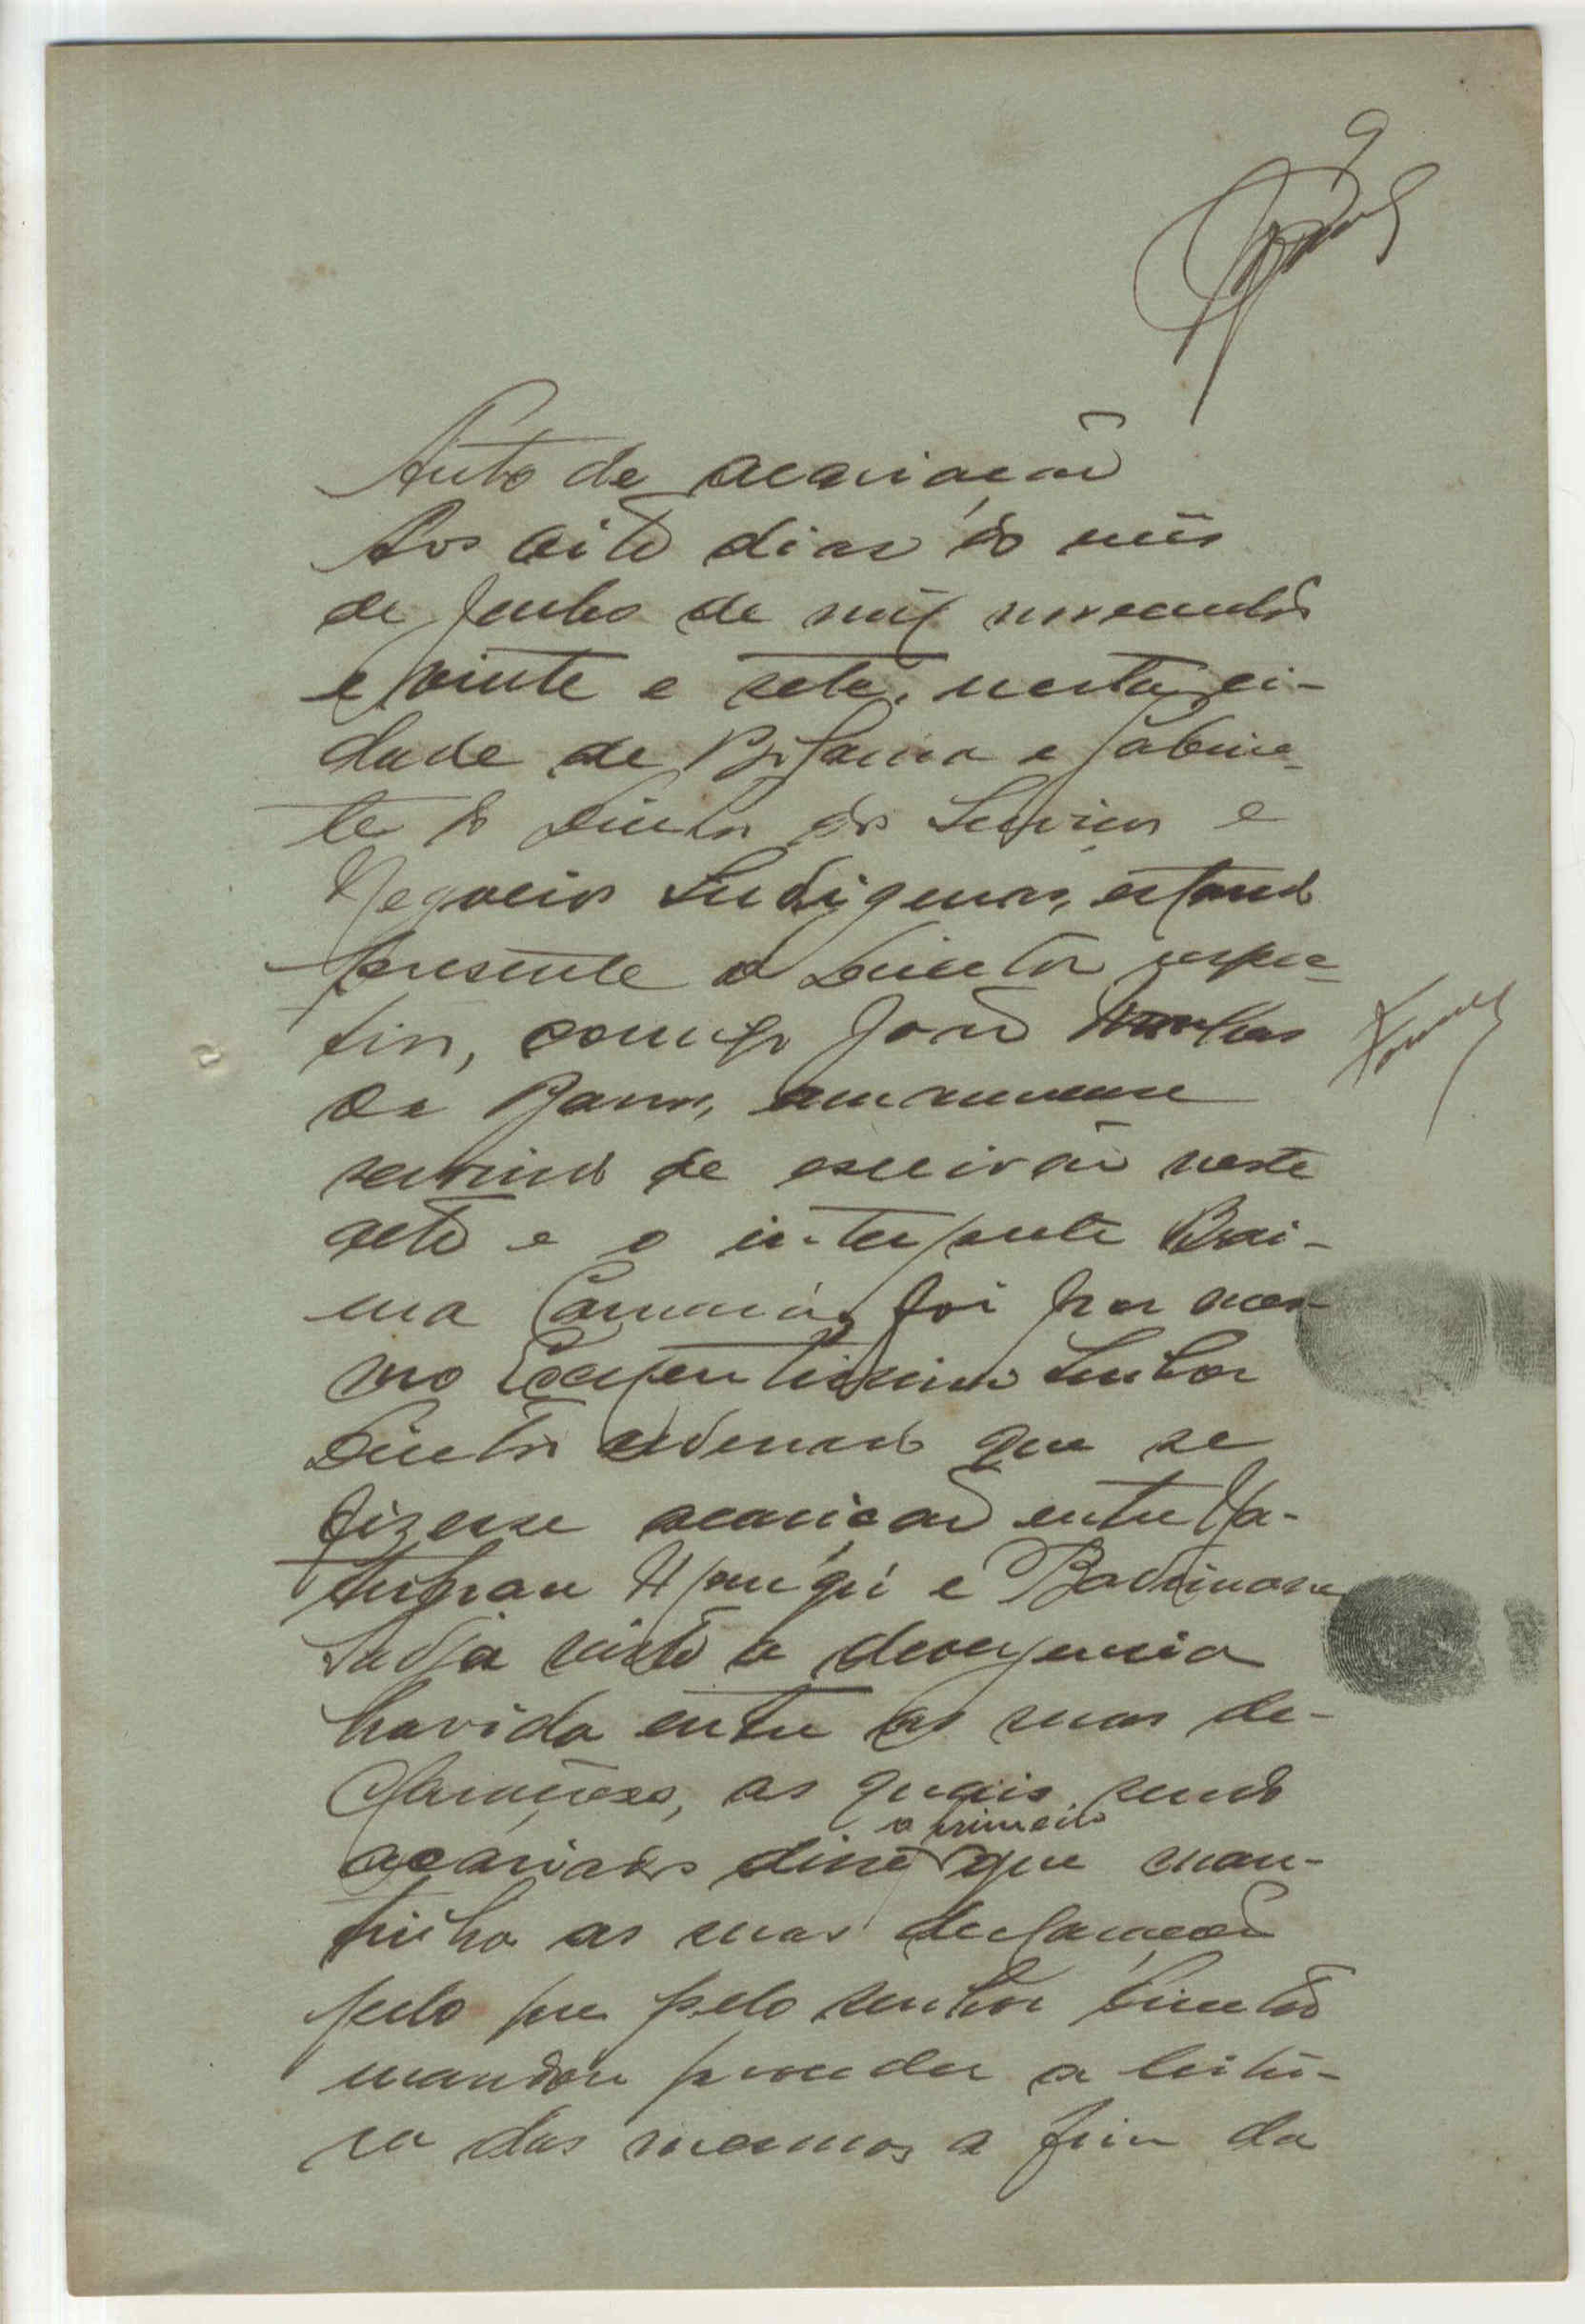 9
Auto de acariação
Aos oito dias do mês
de Junho de mil novecentos
e vinte e sete, nesta ci-
dade de Bolama e Gabine-
te do Director dos Serviços e
Negocios Indigenas, estando
presente o Director respec-
tivo, comigo João
de Barros, amanuense
servindo de escrivão neste
acto e o interprete Brai-
ma Camará, foi por mes-
mo Excelentissimo Senhor
Director ordenado que se
fizesse acariação entre
e
visto a devergencia
havida entre as suas de-
clarações, as quais sendo
acariados disse o primeiro que man-
tinha as suas declarações
pelo que pelo senhor Director
mandou proceder a leitu-
ra das mesmas a fim da